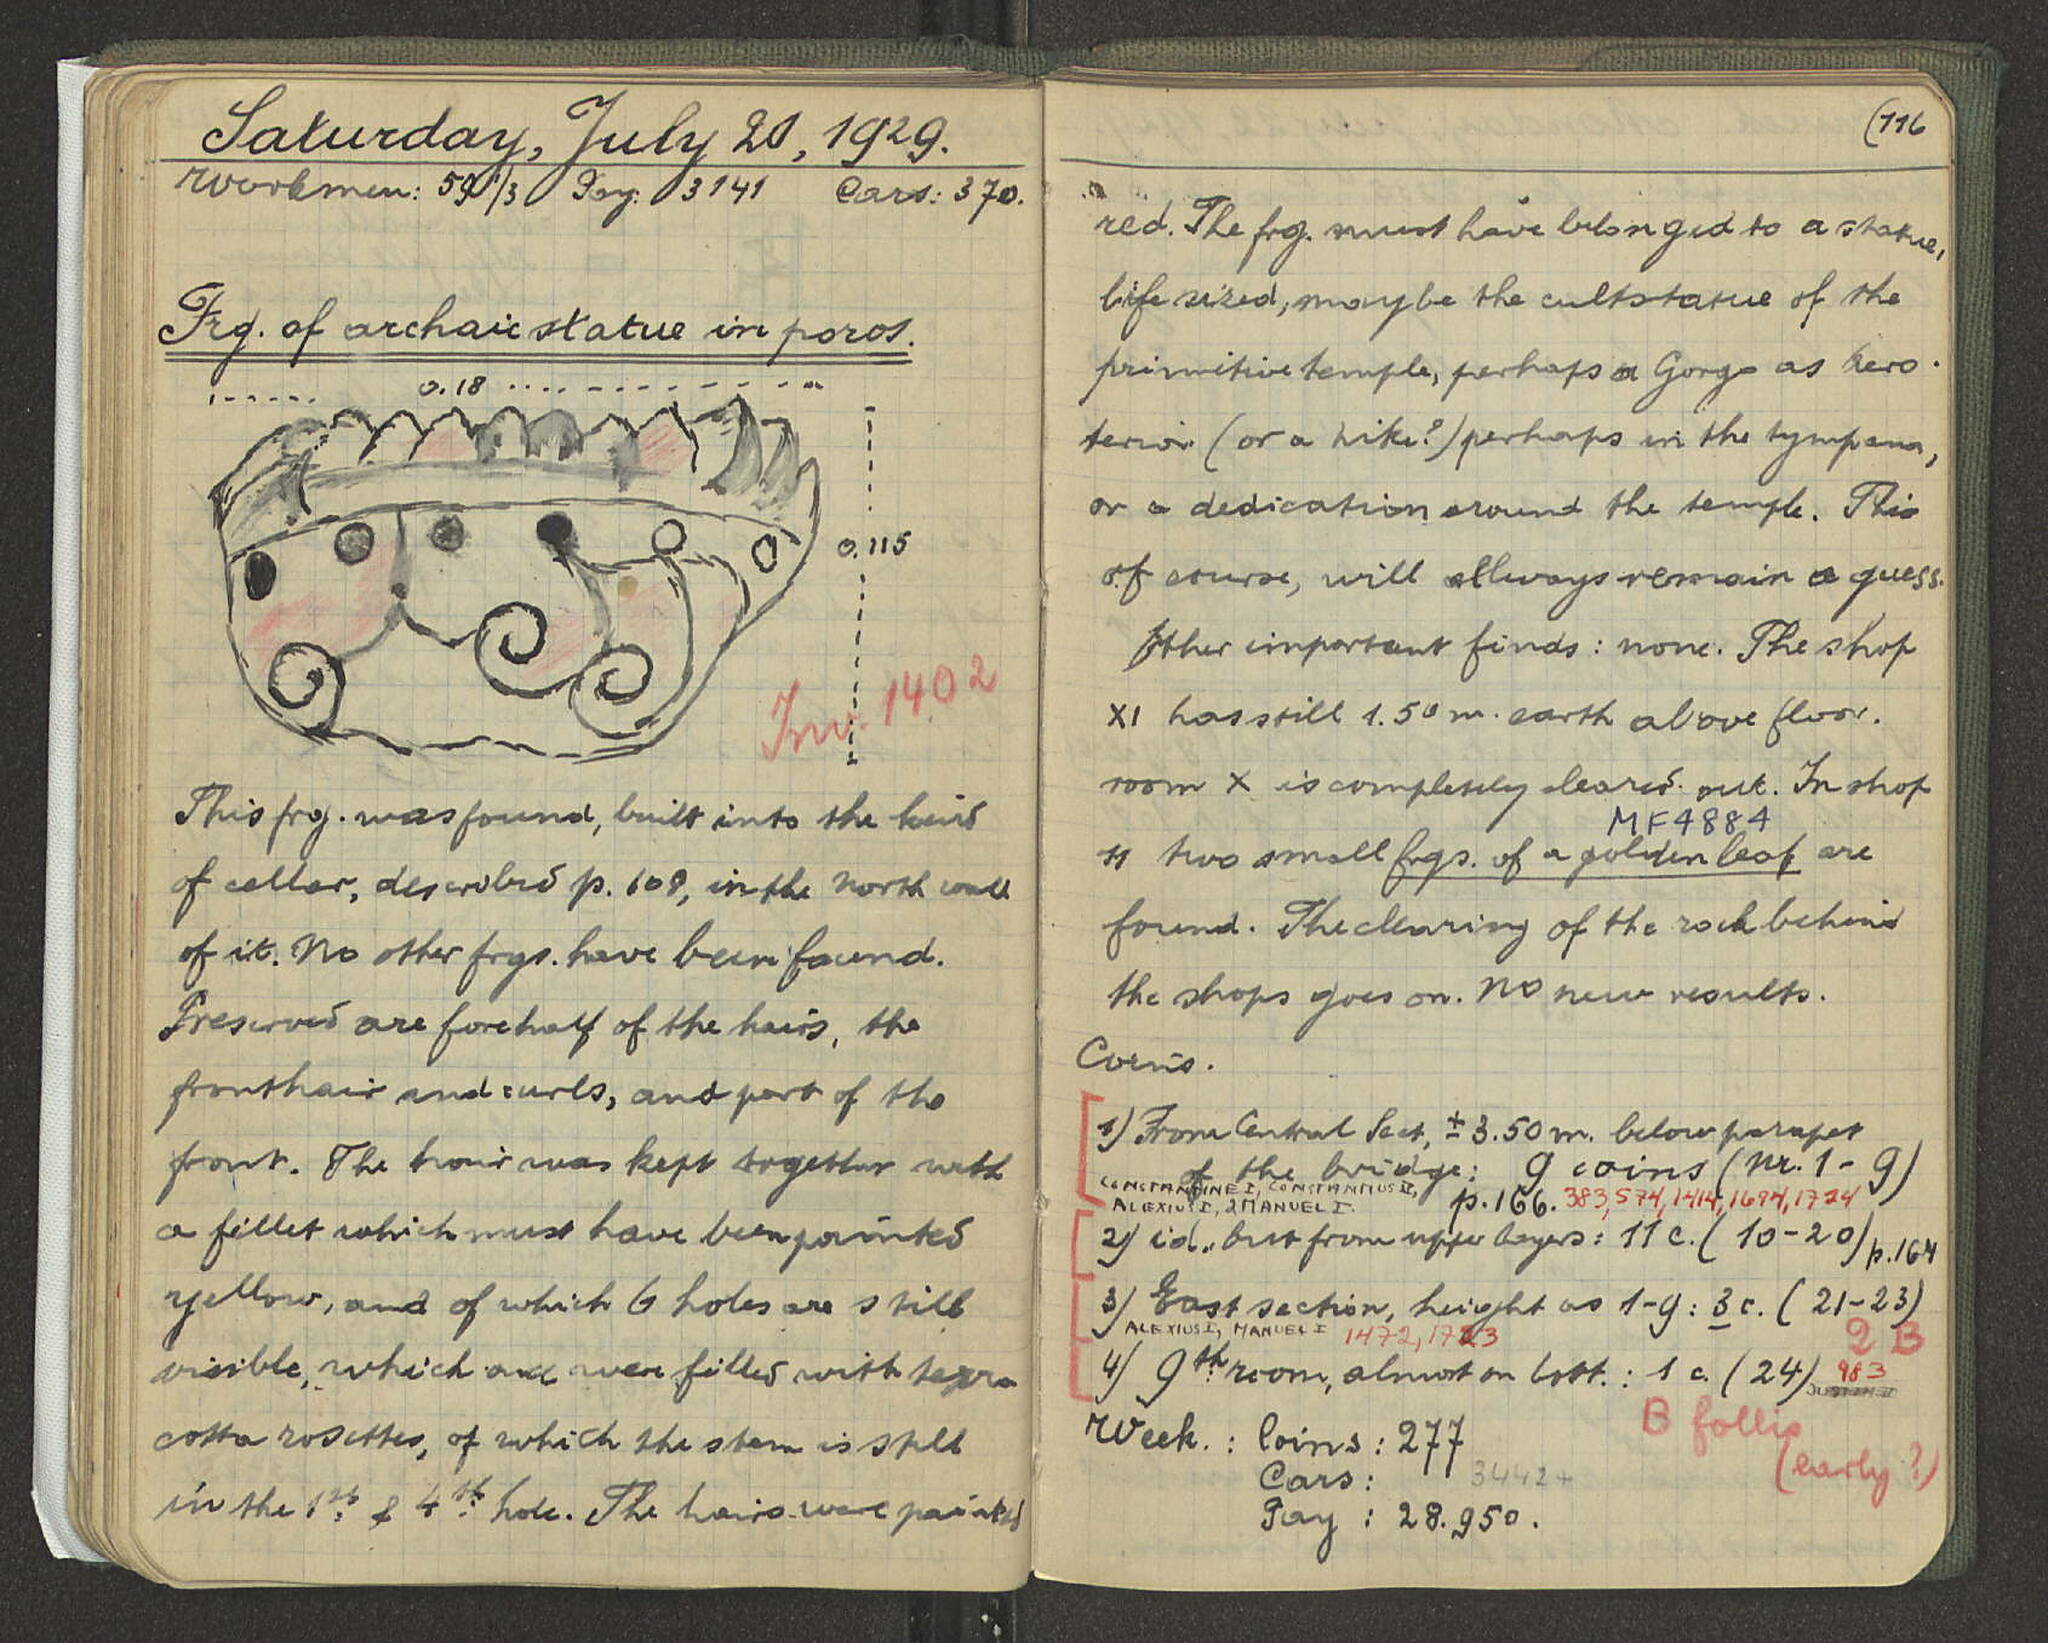 Saturday, July 20, 1929.
Workmen: 59 1/3 Pay: 3141 Cars: 370.
Frg. of archaic statue in poros.
0.18
0.115
Inv. 1402
This frg. was found, built into the
of cellar, described p. 109, in the north wall
of it. No other frgs. have been found.
Preserved are forehalf of the hairs, the
fronthair and curls, and part of the
front. The hair was kept together with
a fillet which must have been painted
yellow, and of which 6 holes are still
visible, which were filled with terra
cotta rosettes, of which the stem is still
in the 1st. & 4th. hole. The hairs were painted
(116
red. The frg. must have belonged to a statue,
life sized, maybe the cultstatue of the
primitive temple, perhaps a Gorgo as
(or a Nike?) perhaps in the tympana,
or a dedication around the temple. This
of course, will allways remain a guess.
Other important finds: none. The shop
XI has still 1.50 m. earth above floor.
room X is completely cleared out. In shop
MF4884
11 two small frgs. of a golden leaf are
found. The clearing of the rock behind
the shops goes on. No new results.
Coins.
1) From Central Sect, ± 3.50 m. below parapet
of the bridge: 9 coins (Nr. 1-9)
CONSTANTINE I, CONSTANTIUS II,
ALEXIUS I, 2 MANUEL I. p. 166. 383, 574, 1414, 1694, 1724
2) id., but from upper layers: 11 c. (10-20) p. 164
3) East section, height as 1-9: 3 c. (21-23)
ALEXIUS I, MANUEL I 1472, 1723 2 B
4) 9th. room, almost on bott.: 1 c. (24) 983
B follis
(early?)
Week.: Coins: 277
Cars: 3442+
Pay: 28.950.